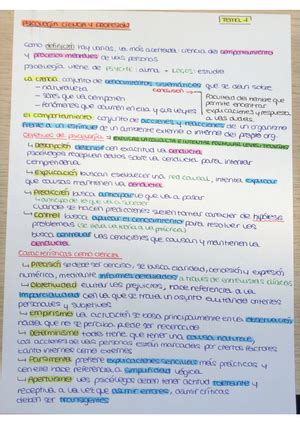 PSICOLOGÍA: CIENCIA Y PROFESIÓN TEMA 1
como definición hay varias, la más acertada: ciencia del comportamiento
y procesos mentales de las personas
psicología viene de psyche: alma + logos: estudio
La ciencia: conjunto de conocimientos sistemáticos que se dan sobre
- naturaleza
- seres que la componen
- fenómenos que ocurren en ella y sus leyes
facultad del hombre que
permite encontrar
explicaciones y respuestas
a las dudas.
El comportamiento: conjunto de acciones y reacciones de un organismo
frente a un estímulo de un ambiente externo o interno del propio org.
Objetivos de psicología
↳ Descripción: describir con exactitud la conducta
psicólogos recopilan datos sobre la conducta para intentar
comprenderla.
↳ Explicación: buscan establecer una red causal, intentan explicar
que causas mantienen la conducta
↳ Predicción: busca anticiparse a que va a pasar
cuando se hacen predicciones suelen tomar carácter de hipótesis
↳ Control: busca aplicar el conocimiento para resolver los
problemas
busca controlar las condiciones que causan y mantienen la
conducta.
Características como ciencia
↳ Precisión: se debe ser conciso, se busca claridad, concisión y expresión
numérica, mediante informes detallados
↳ Objetividad: evitar los prejuicios, hace referencia a la
imparcialidad con la que se trata un asunto evitando criterios
personales y subjetivos
↳ Empirismo: la actuación se basa principalmente en la observación
nada que no se perciba puede ser reconocido
↳ Determinismo: todo tiene que tener una causa natural,
las acciones de las personas están marcadas por ciertos factores
tanto internos como externos
↳ Parsimonia: prefiere explicaciones sencillas más prácticas y
también hace referencia a simplicidad lógica
↳ Aperturismo: los psicólogos deben tener actitud tolerante y
receptiva a la vez que asumir errores, admitir críticas
deben ser transigentes